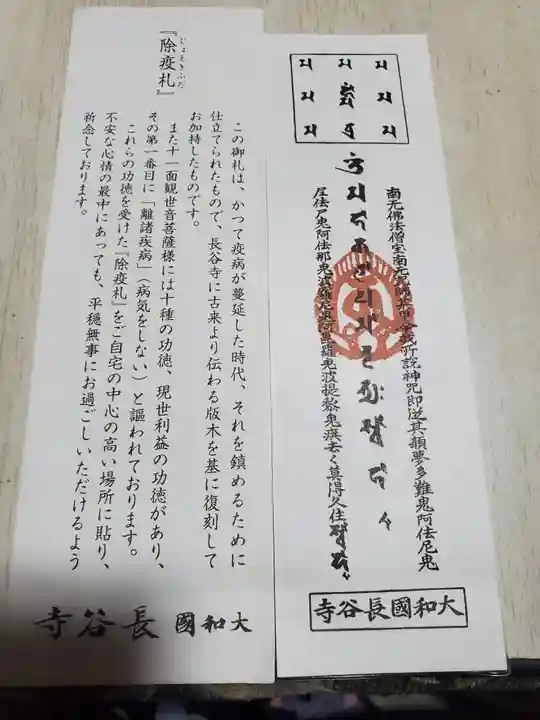 『除疫札』
じょえきふだ
この御札は、かつて疫病が蔓延した時代、それを鎮めるために
仕立てられたもので、長谷寺に古来より伝わる版木を基に復刻して
お加持したものです。
また十一面観世音菩薩様には十種の功徳、現世利益の功徳があり、
その第一番目に「離諸疾病」（病気をしない）と謳われております。
これらの功徳を受けた『除疫札』をご自宅の中心の高い場所に貼り、
不安な心情の最中にあっても、平穏無事にお過ごしいただけるよう
祈念しております。
大和國 長谷寺
南无佛法僧宝南无
所説神咒即従其願夢多難鬼阿佉尼鬼
尼佉尸鬼阿佉那鬼波
鬼波提黎鬼疾去く莫得久住
大和國長谷寺